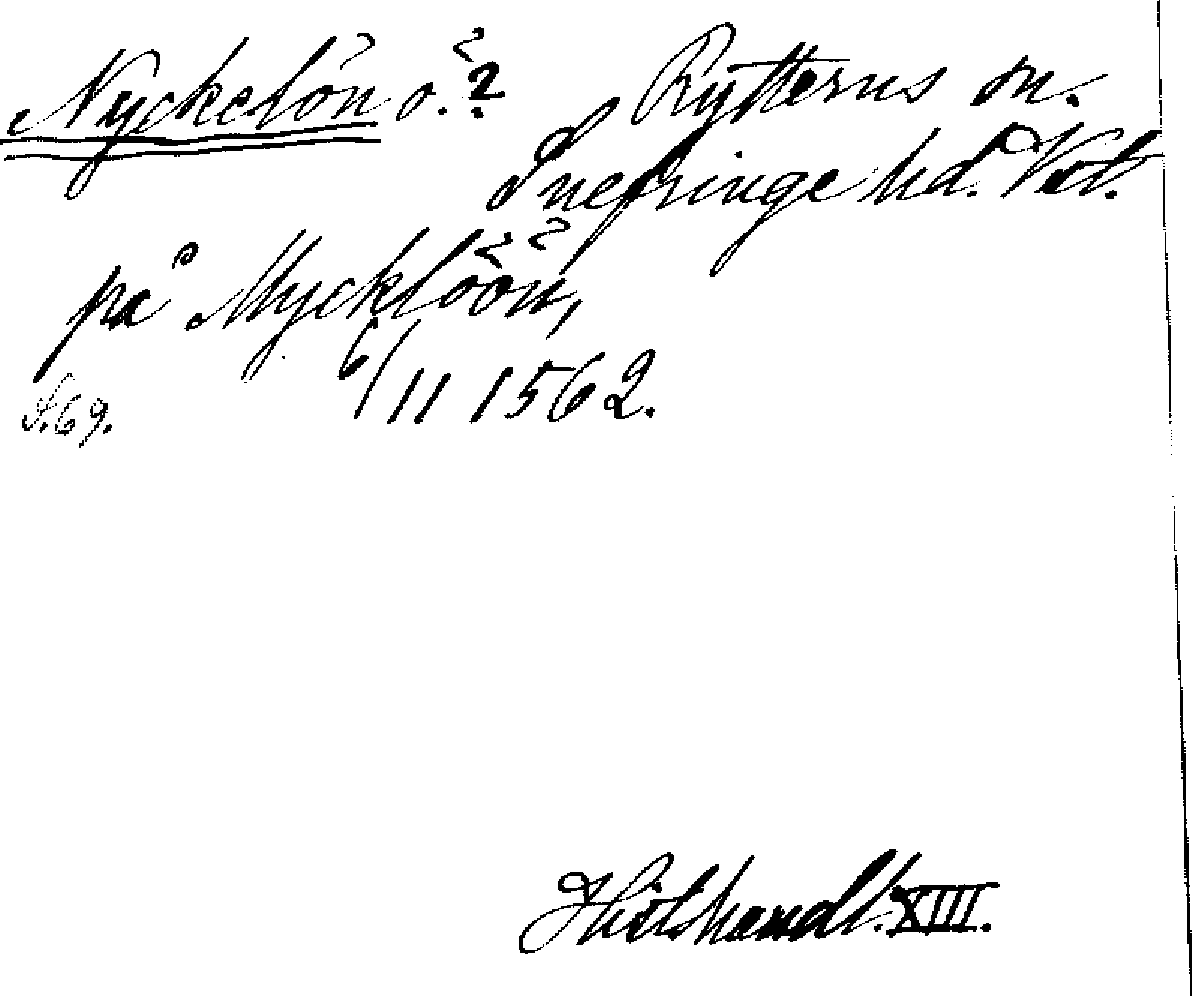 Nyckelön ö.? Rytterns sn.
Snefringe hd. Vstl.
på Myckloön,
6/11 1562.
S.69.
Hist handl. XIII.